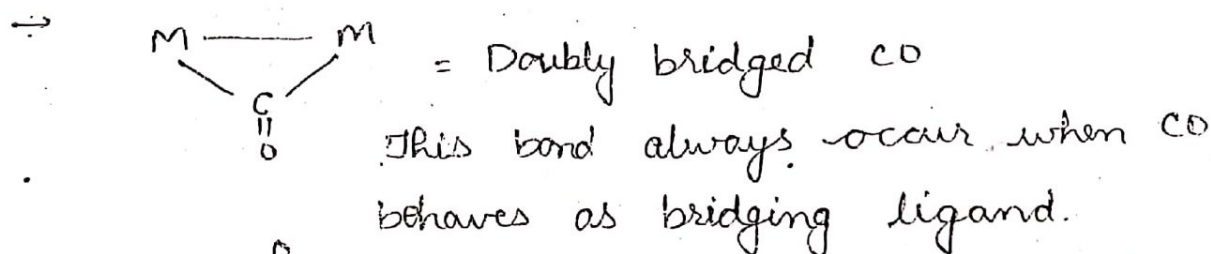 M M
C
O
= Doubly bridged CO
This bond always occur when CO
behaves as bridging ligand.